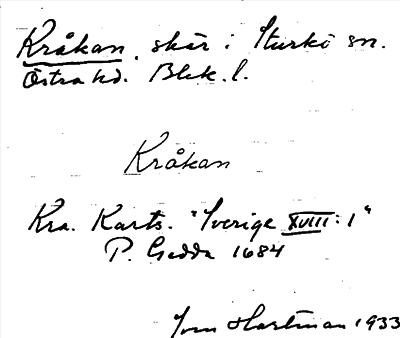 Kråkan, skär i Sturkö sn.
Östra hd. Blek. l.
Kråkan
Kra. Karts. "Sverige XVIII: 1"
P. Gedda 1684
Hartman 1933